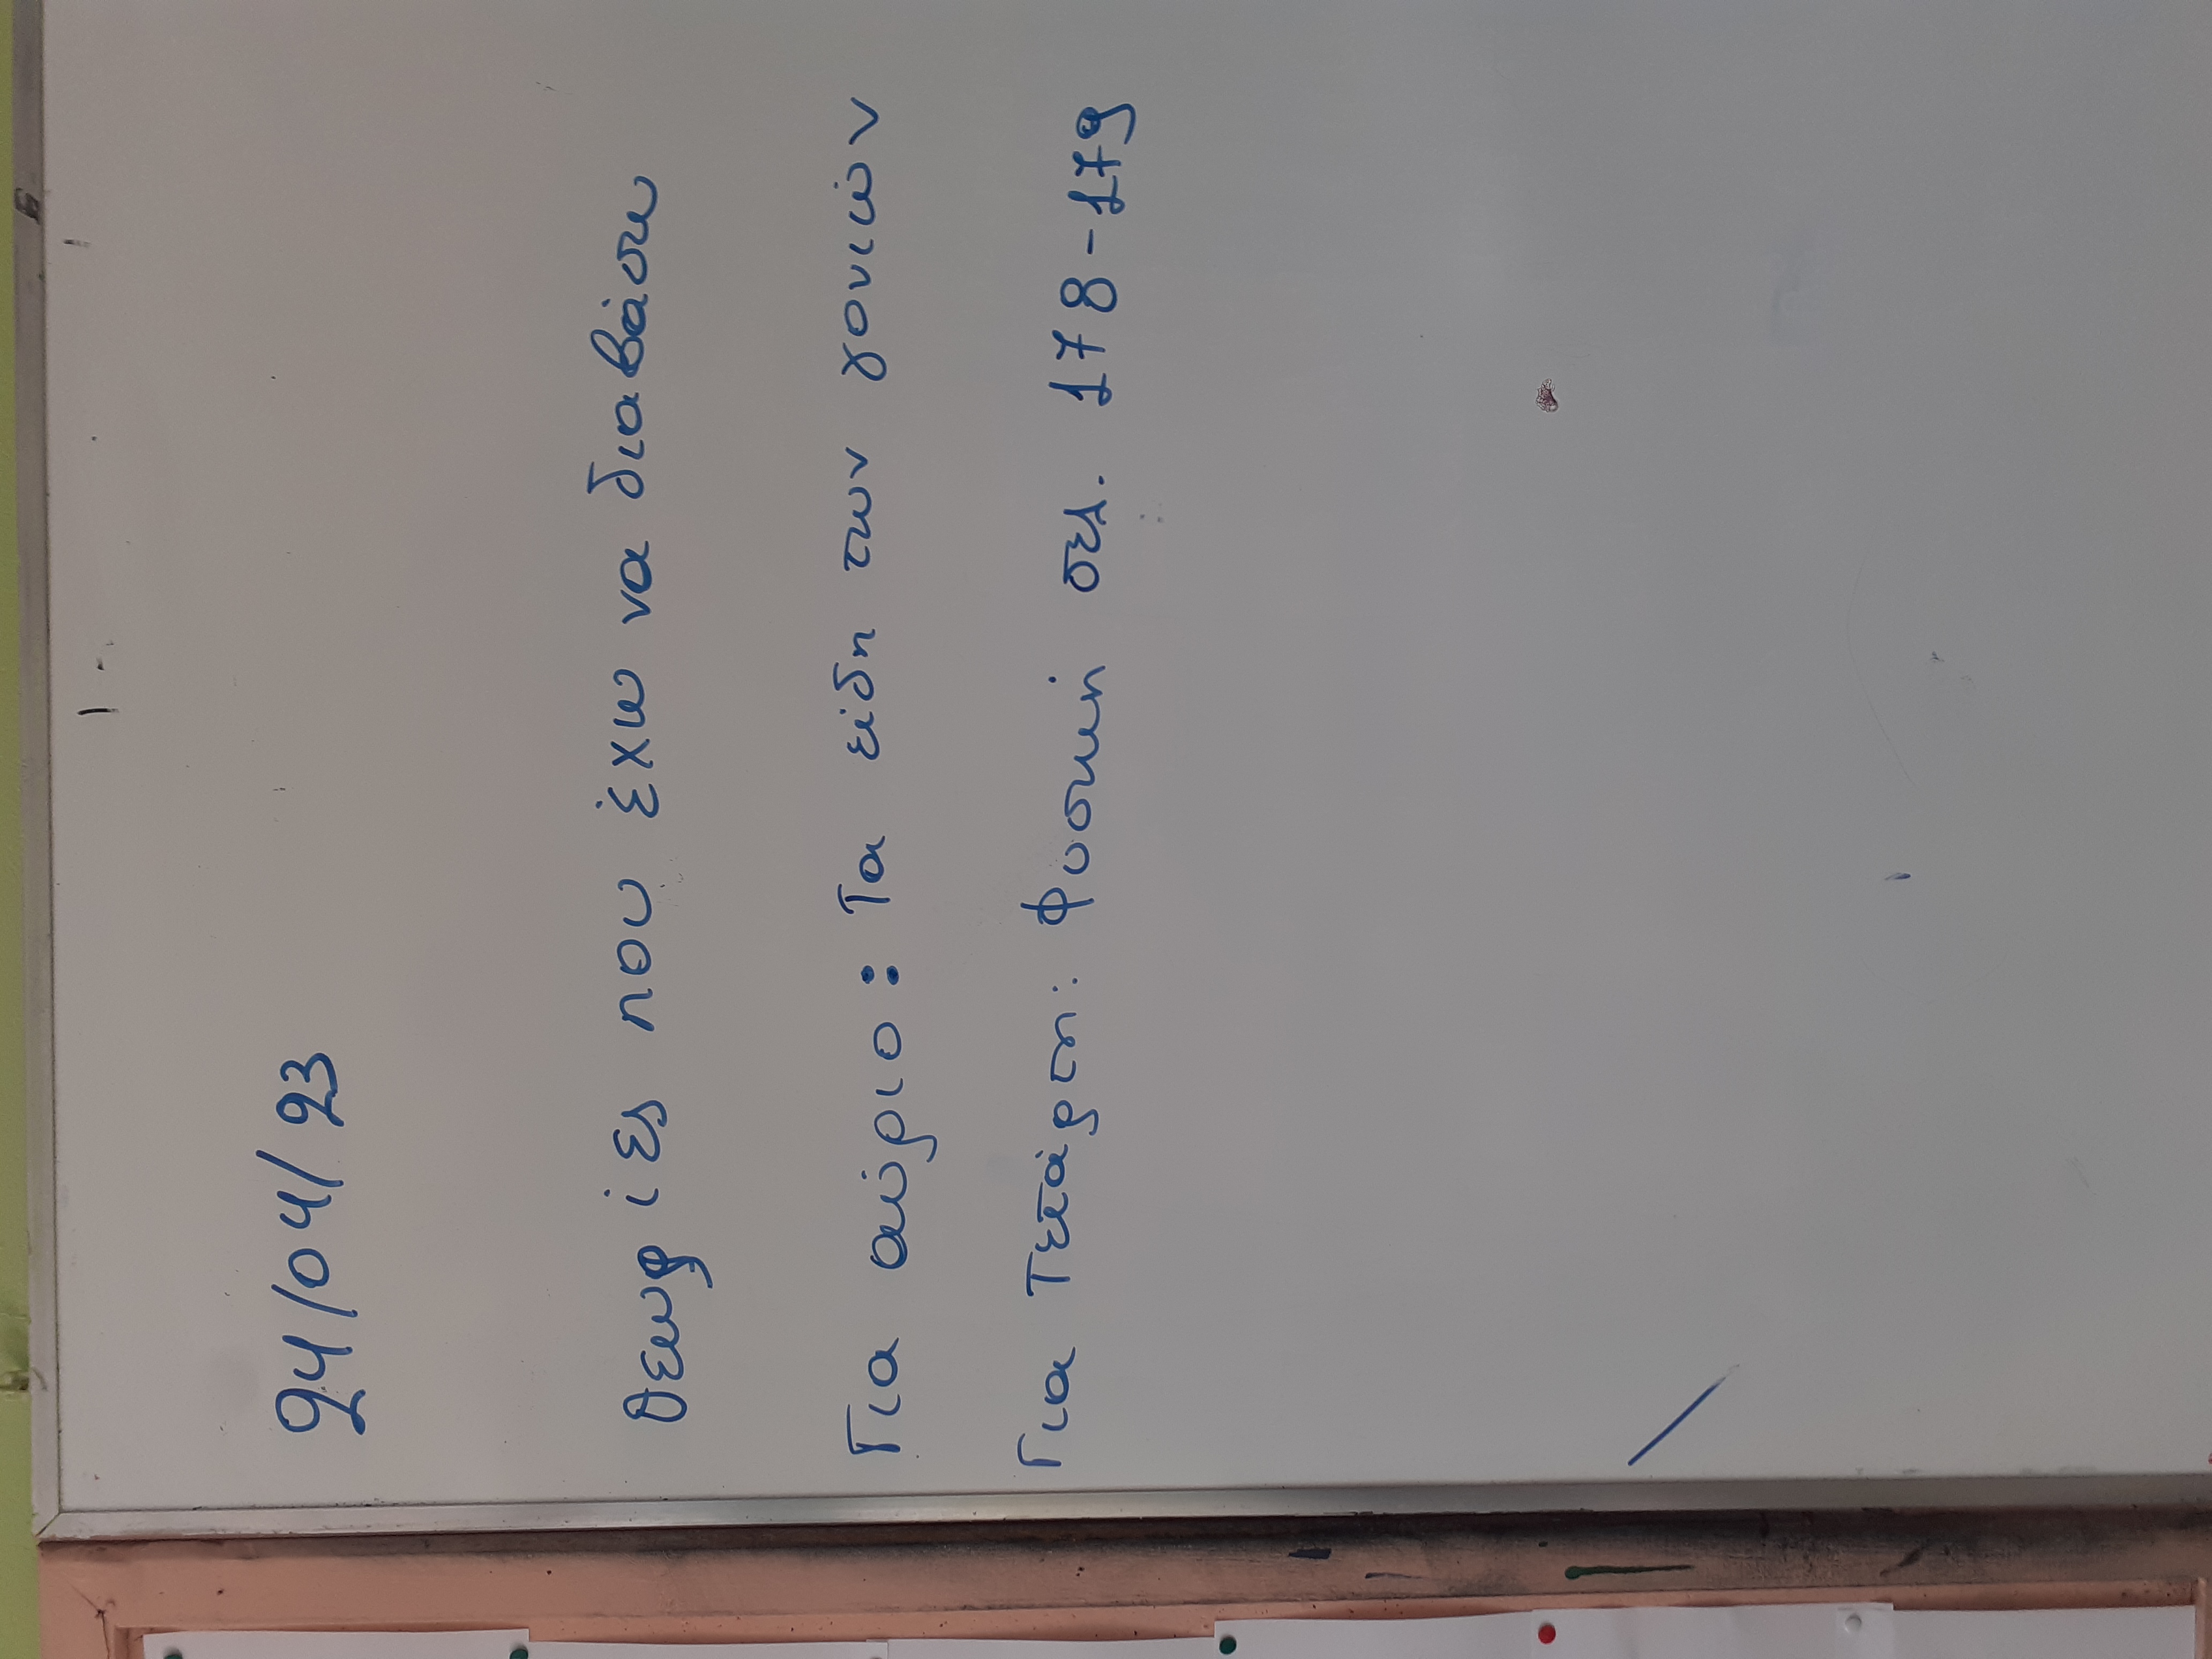 24/04/23
Θεωρίες που έχω να διαβάσω
Για αύριο: Τα είδη των γονιών
Για Τετάρτη: Φυσική σελ. 178-179